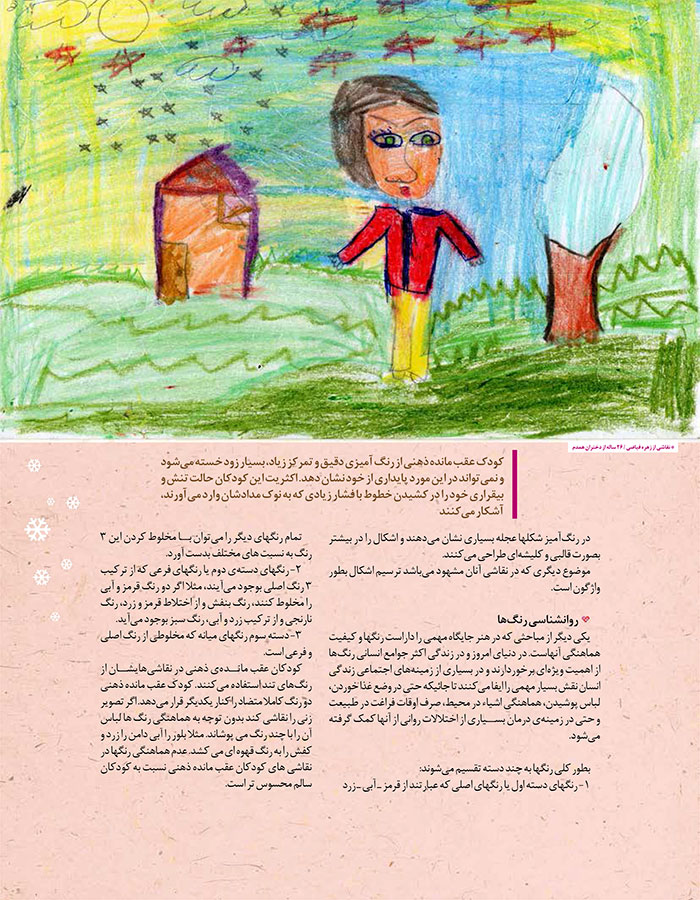 * نقاشی از زهره فیاضی / ۲۶ ساله از دختران همدم
کودک عقب مانده ذهنی از رنگ آمیزی دقیق و تمرکز زیاد، بسیار زود خسته می‌شود
و نمی تواند در این مورد پایداری از خود نشان دهد. اکثریت این کودکان حالت تنش و
بیقراری خود را در کشیدن خطوط با فشار زیادی که به نوک مدادشان وارد می آورند،
آشکار می کنند
در رنگ‌آمیز شکلها عجله بسیاری نشان می‌دهند و اشکال را در بیشتر
بصورت قالبی و کلیشه‌ای طراحی می‌کنند.
موضوع دیگری که در نقاشی آنان مشهود می‌باشد ترسیم اشکال بطور
واژگون است.
روانشناسی رنگ‌ها
یکی دیگر از مباحثی که در هنر جایگاه مهمی را داراست رنگها و کیفیت
هماهنگی آنهاست. در دنیای امروز و در زندگی اکثر جوامع انسانی رنگ‌ها
از اهمیت ویژه‌ای برخوردارند و در بسیاری از زمینه‌های اجتماعی زندگی
انسان نقش بسیار مهمی را ایفا می‌کنند تا جائیکه حتی در وضع غذا خوردن،
لباس پوشیدن، هماهنگی اشیاء در محیط، صرف اوقات فراغت در طبیعت
و حتی در زمینه‌ی درمان بسیاری از اختلالات روانی از آنها کمک گرفته
می‌شود.
بطور کلی رنگها به چند دسته تقسیم می‌شوند:
۱-رنگهای دسته اول یا رنگهای اصلی که عبارتند از قرمز ـ آبی ـ زرد
تمام رنگهای دیگر را می‌توان با مخلوط کردن این ۳
رنگ به نسبت های مختلف بدست آورد.
۲-رنگهای دسته‌ی دوم یا رنگهای فرعی که از ترکیب
۳ رنگ اصلی بوجود می‌آیند، مثلا اگر دو رنگ قرمز و آبی
را مخلوط کنند، رنگ بنفش و از اختلاط قرمز و زرد، رنگ
نارنجی و از ترکیب زرد و آبی، رنگ سبز بوجود می‌آید.
۳-دسته سوم رنگهای میانه که مخلوطی از رنگ اصلی
و فرعی است.
کودکان عقب مانده‌ی ذهنی در نقاشی‌هایشان از
رنگ‌های تند استفاده می‌کنند. کودک عقب مانده ذهنی
دو رنگ کاملا متضاد را کنار یکدیگر قرار می‌دهد. اگر تصویر
زنی را نقاشی کند بدون توجه به هماهنگی رنگ ها لباس
آن را با چند رنگ می پوشاند. مثلا بلوز را آبی دامن را زرد و
کفش را به رنگ قهوه ای می کشد. عدم هماهنگی رنگها در
نقاشی های کودکان عقب مانده ذهنی نسبت به کودکان
سالم محسوس تر است.